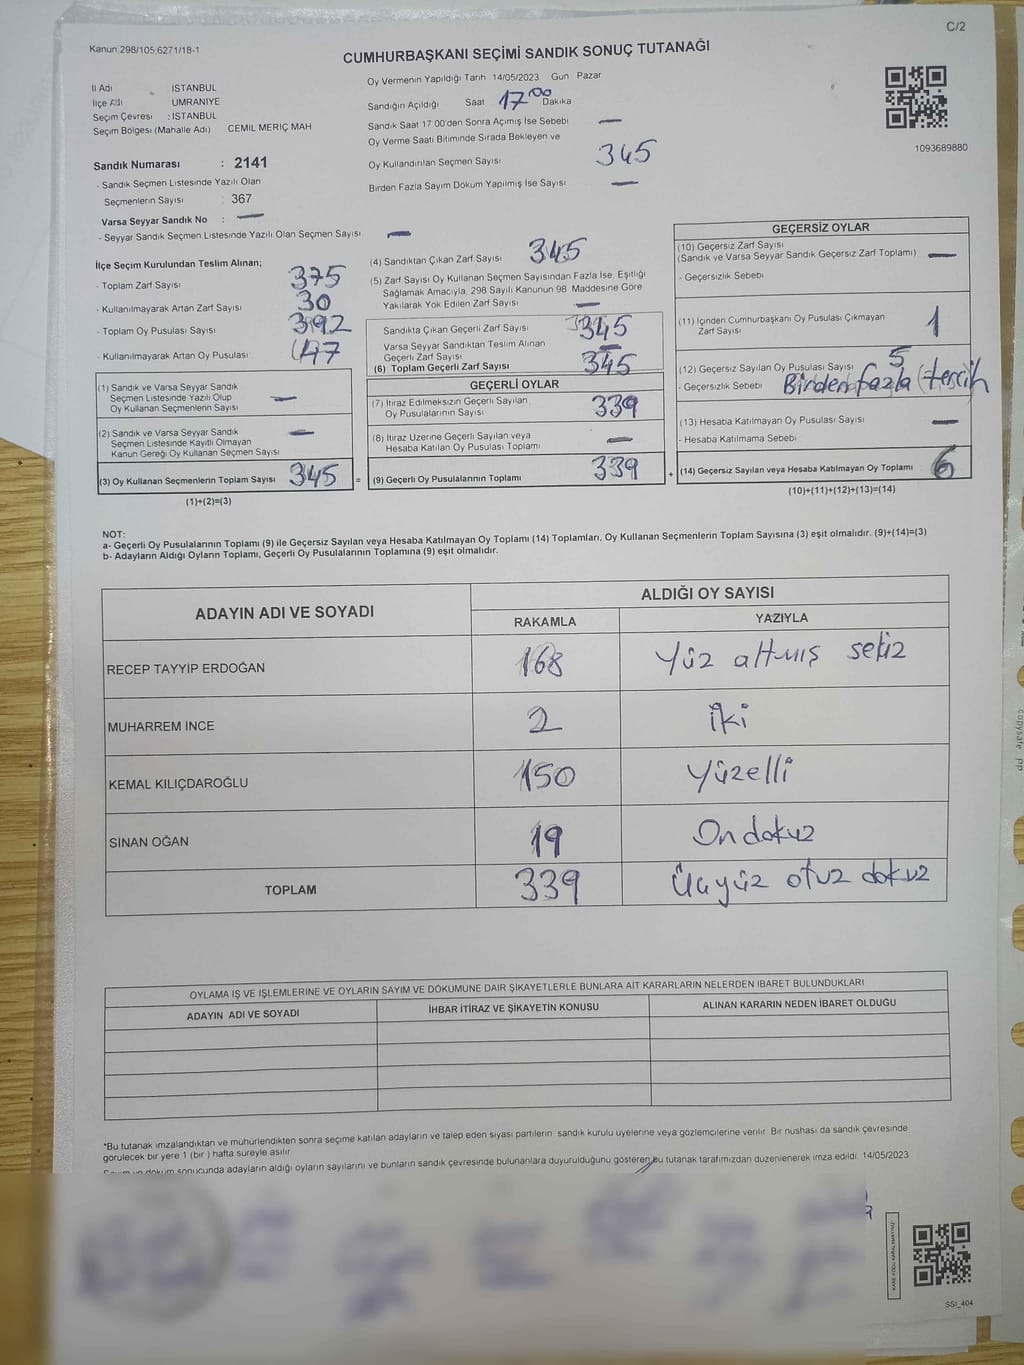 C/2
Kanun,298/105 6271/18-1
CUMHURBAŞKANI SEÇİMİ SANDIK SONUÇ TUTANAĞI
İl Adı İSTANBUL
İlçe Adı ÜMRANİYE
Seçim Çevresi : İSTANBUL
Seçim Bölgesi (Mahalle Adı) CEMİL MERİÇ MAH
Oy Vermenin Yapıldığı Tarih 14/05/2023 Gün Pazar
Sandığın Açıldığı Saat 17 00 Dakika
Sandık Saat 17 00'den Sonra Açımış İse Sebebi —
Oy Verme Saati Bitiminde Sırada Bekleyen ve
Oy Kullandırılan Seçmen Sayısı 345
Birden Fazla Sayım Döküm Yapılmış İse Sayısı —
1093689880
Sandık Numarası : 2141
- Sandık Seçmen Listesinde Yazılı Olan
Seçmenlerin Sayısı : 367
Varsa Seyyar Sandık No : —
- Seyyar Sandık Seçmen Listesinde Yazılı Olan Seçmen Sayısı —
İlçe Seçim Kurulundan Teslim Alınan;
- Toplam Zarf Sayısı 375
- Kullanılmayarak Artan Zarf Sayısı 30
- Toplam Oy Pusulası Sayısı 392
- Kullanılmayarak Artan Oy Pusulası 47
(1) Sandık ve Varsa Seyyar Sandık
Seçmen Listesinde Yazılı Olup
Oy Kullanan Seçmenlerin Sayısı —
(2) Sandık ve Varsa Seyyar Sandık
Seçmen Listesinde Kayıtlı Olmayan
Kanun Gereği Oy Kullanan Seçmen Sayısı —
(3) Oy Kullanan Seçmenlerin Toplam Sayısı 345 =
(1)+(2)=(3)
(4) Sandıktan Çıkan Zarf Sayısı 345
(5) Zarf Sayısı Oy Kullanan Seçmen Sayısından Fazla İse, Eşitliği
Sağlamak Amacıyla, 298 Sayılı Kanunun 98 Maddesine Göre
Yakılarak Yok Edilen Zarf Sayısı —
Sandıkta Çıkan Geçerli Zarf Sayısı 345
Varsa Seyyar Sandıktan Teslim Alınan
Geçerli Zarf Sayısı —
(6) Toplam Geçerli Zarf Sayısı 345
GEÇERLİ OYLAR
(7) İtiraz Edilmeksizin Geçerli Sayılan
Oy Pusulalarının Sayısı 339
(8) İtiraz Üzerine Geçerli Sayılan veya
Hesaba Katılan Oy Pusulası Toplamı —
(9) Geçerli Oy Pusulalarının Toplamı 339 +
GEÇERSİZ OYLAR
(10) Geçersiz Zarf Sayısı
(Sandık ve Varsa Seyyar Sandık Geçersiz Zarf Toplamı) —
- Geçersizlik Sebebi
(11) İçinden Cumhurbaşkanı Oy Pusulası Çıkmayan
Zarf Sayısı 1
(12) Geçersiz Sayılan Oy Pusulası Sayısı 5
- Geçersizlik Sebebi Birden fazla tercih
(13) Hesaba Katılmayan Oy Pusulası Sayısı —
- Hesaba Katılmama Sebebi
(14) Geçersiz Sayılan veya Hesaba Katılmayan Oy Toplamı 6
(10)+(11)+(12)+(13)=(14)
NOT:
a- Geçerli Oy Pusulalarının Toplamı (9) ile Geçersiz Sayılan veya Hesaba Katılmayan Oy Toplamı (14) Toplamları, Oy Kullanan Seçmenlerin Toplam Sayısına (3) eşit olmalıdır. (9)+(14)=(3)
b- Adayların Aldığı Oyların Toplamı, Geçerli Oy Pusulalarının Toplamına (9) eşit olmalıdır.
ADAYIN ADI VE SOYADI ALDIĞI OY SAYISI
RAKAMLA YAZIYLA
RECEP TAYYİP ERDOĞAN 168 Yüz altmış sekiz
MUHARREM İNCE 2 İki
KEMAL KILIÇDAROĞLU 150 Yüzelli
SİNAN OĞAN 19 On dokuz
TOPLAM 339 Üçyüz otuz dokuz
OYLAMA İŞ VE İŞLEMLERİNE VE OYLARIN SAYIM VE DÖKÜMÜNE DAİR ŞİKAYETLERLE BUNLARA AİT KARARLARIN NELERDEN İBARET BULUNDUKLARI
ADAYIN ADI VE SOYADI İHBAR İTİRAZ VE ŞİKAYETİN KONUSU ALINAN KARARIN NEDEN İBARET OLDUĞU
*Bu tutanak imzalandıktan ve mühürlendikten sonra seçime katılan adayların ve talep eden siyasi partilerin sandık kurulu üyelerine veya gözlemcilerine verilir. Bir nüshası da sandık çevresinde
görülecek bir yere 1 (bir) hafta süreyle asılır
Sayım ve döküm sonucunda adayların aldığı oyların sayılarını ve bunların sandık çevresinde bulunanlara duyurulduğunu gösteren bu tutanak tarafımızdan düzenlenerek imza edildi. 14/05/2023
SSİ_404
copysafe pp